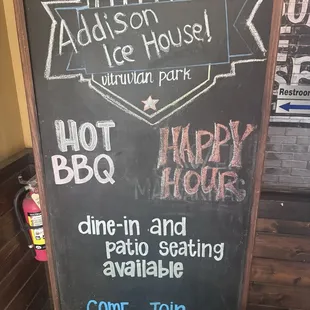 Addison
Ice House!
vitruvian park
HOT
BBQ
HAPPY
HOUR
dine-in and
patio seating
available
COME JOIN
Restroom